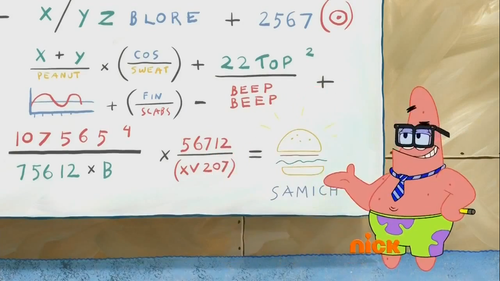 - X/YZ BLORE + 2567
X + Y
PEANUT
× (COS
SWEAT) + 22TOP²
BEEP
BEEP
+
+ (FIN
SCABS) -
107565⁴
75612 × B
× 56712
(XV207) =
SAMICH
nick